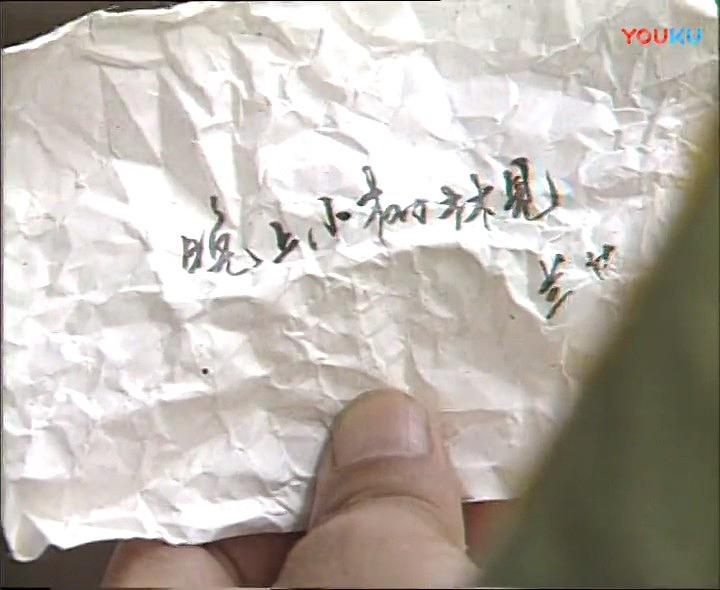 YOUKU
晚上小树林见
兰